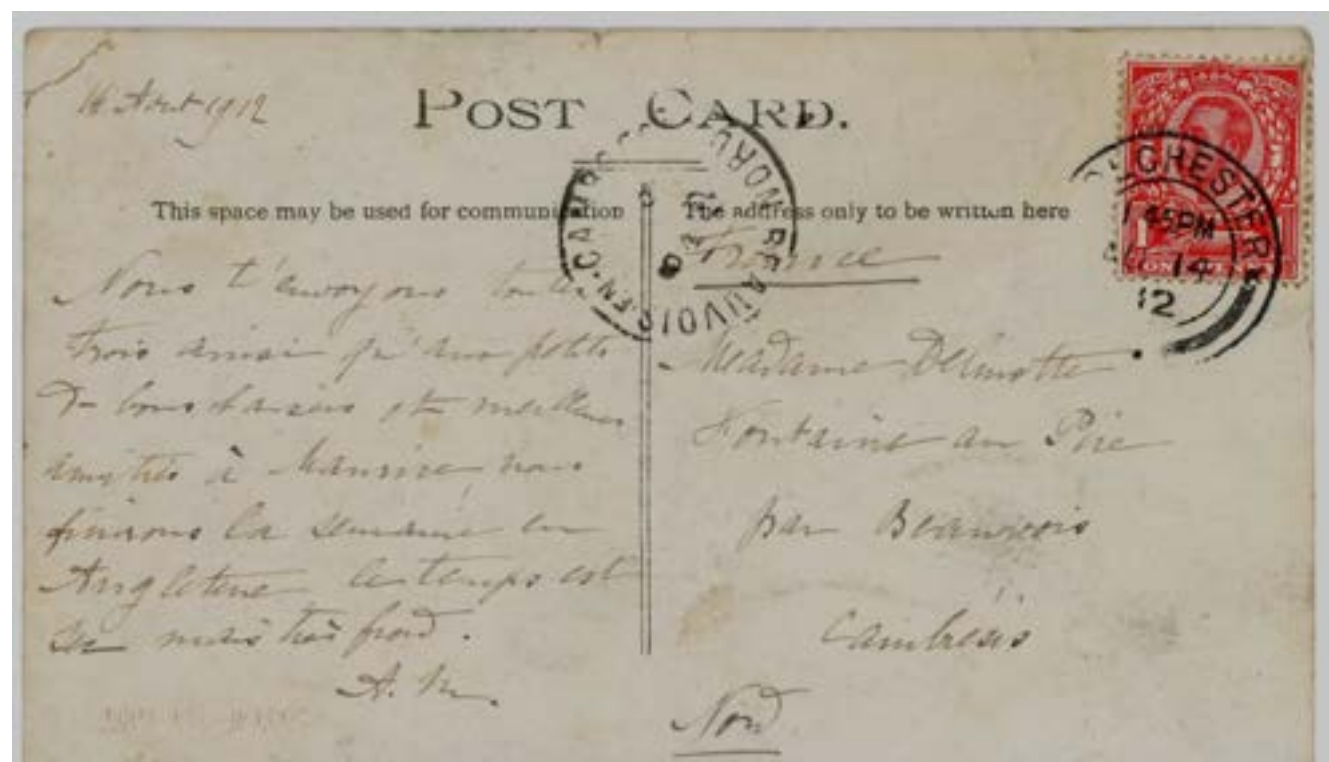 14 Aout 1912
POST CARD.
This space may be used for communication
The address only to be written here
Nous t'envoyons toutes
trois ainsi qu'aux petits
de bons baisers et meilleures
amitiés à Maurice, nous
finirons la semaine en
Angleterre le temps est
sec mais très froid.
A. M.
France
Madame Delmotte
Fontaine au Pire
par Beauvois
Cambrésis
Nord
BEAUVOIS-EN-CAMBRESIS
NORD
CHESTER
45PM
AU 14
12